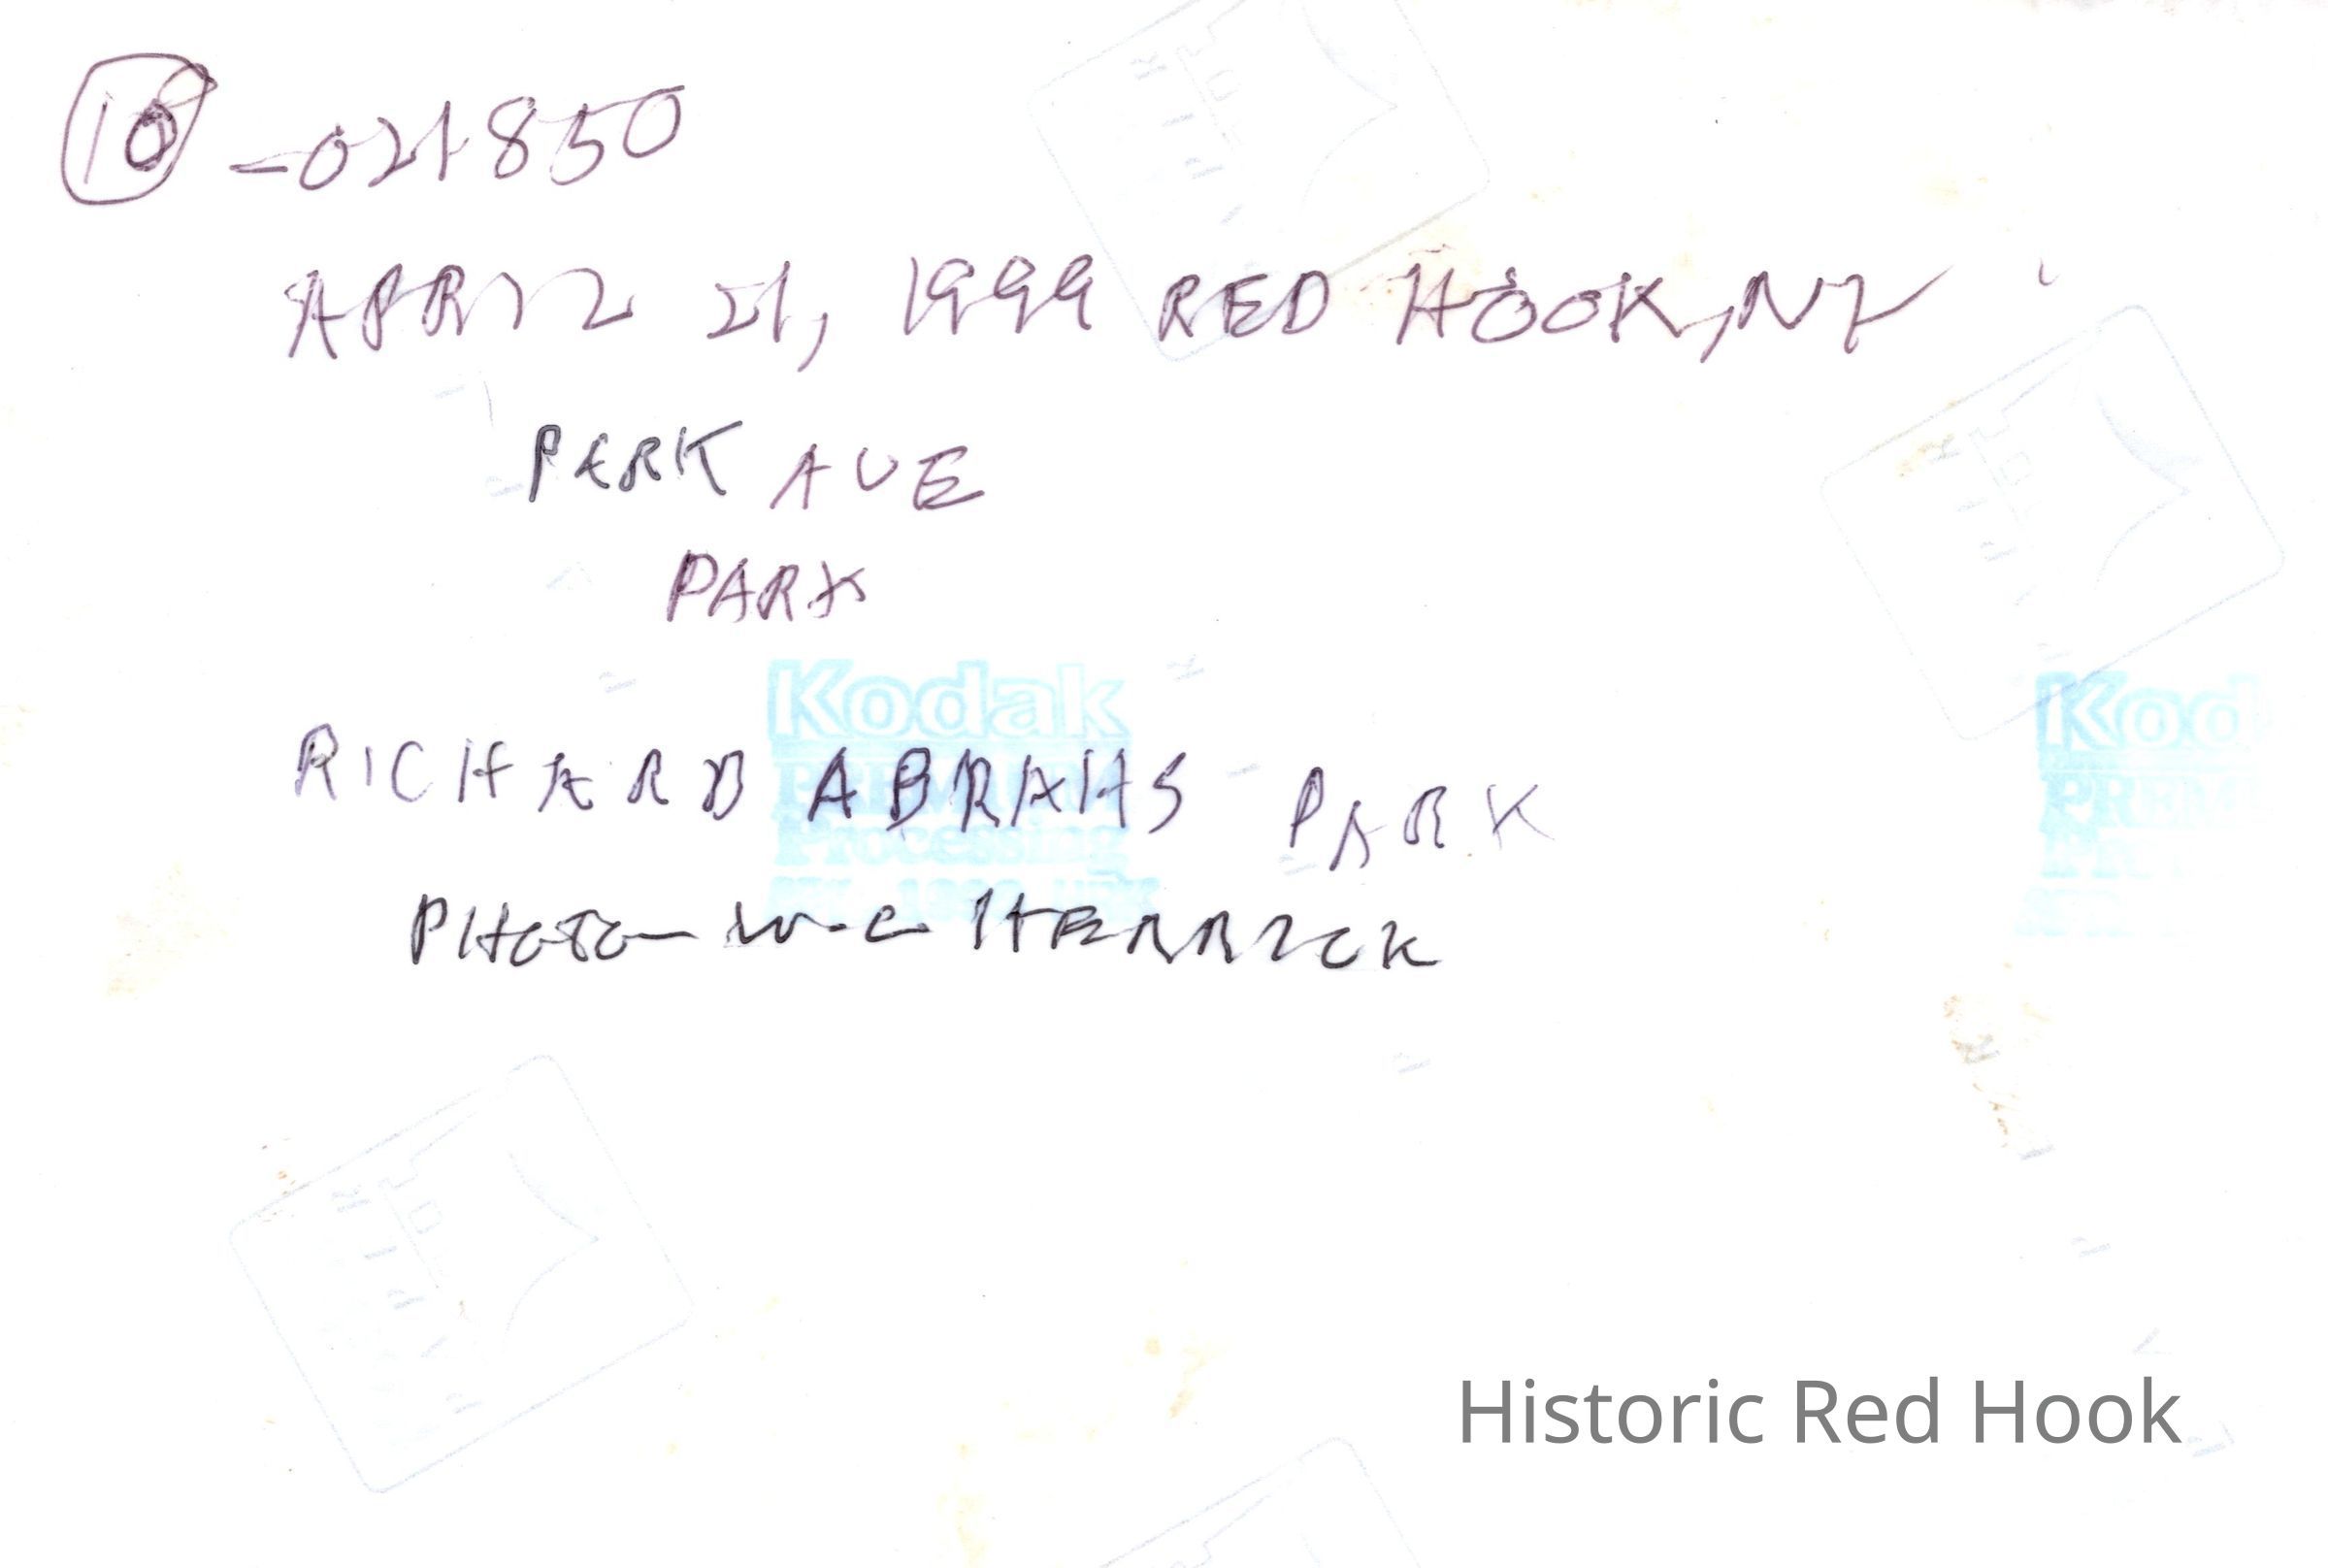 10 -021850
APRIL 21, 1999 RED HOOK, NY
PARK AVE
PARK
Kodak
Kod
RICHARD ABRAHS PARK
Processing
PHOTO- W.C HERRICK
Historic Red Hook